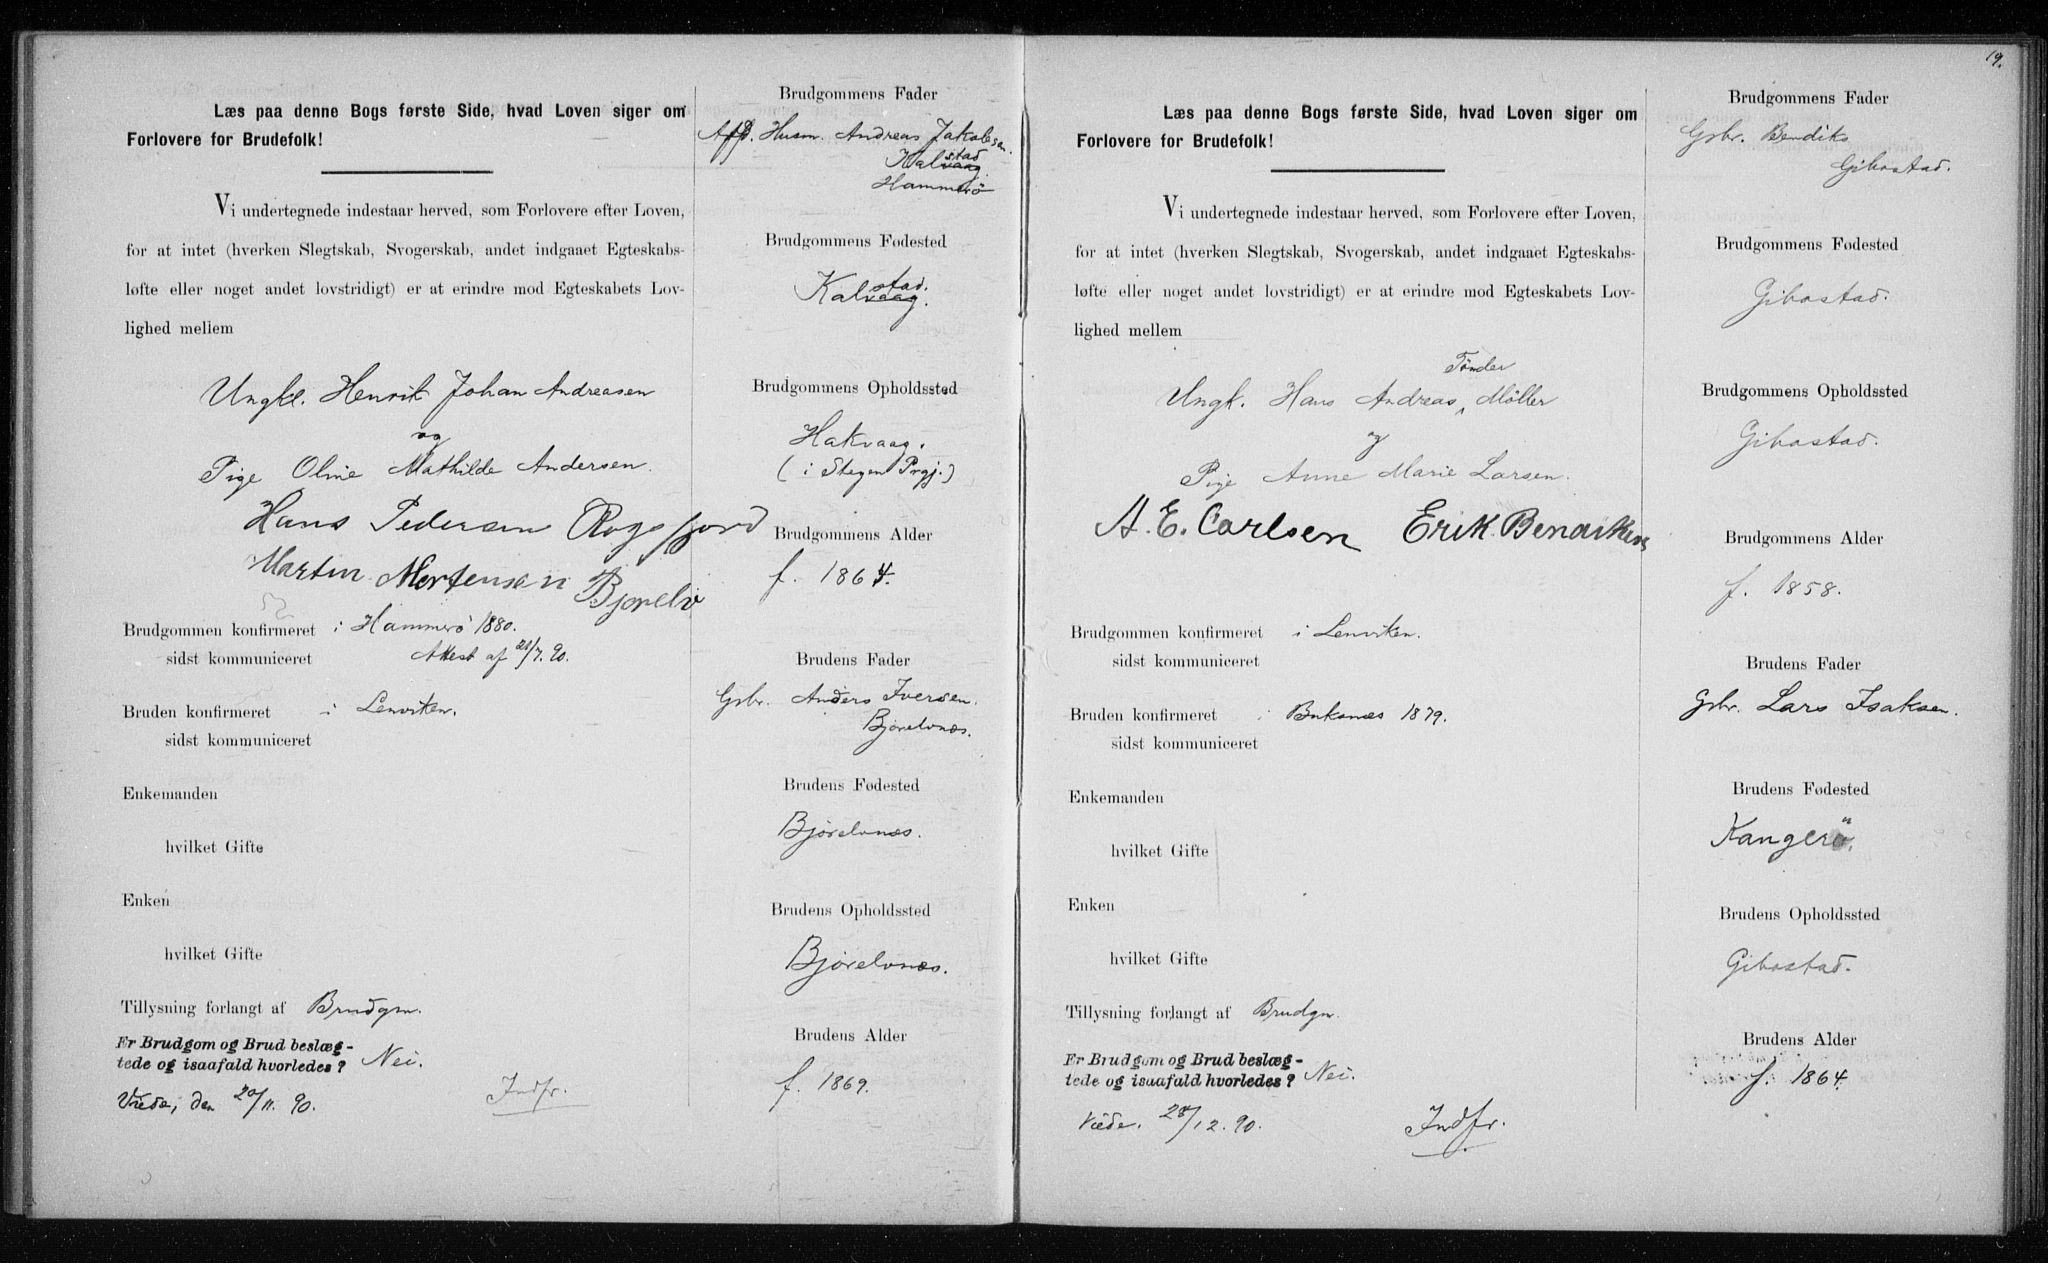 Læs paa denne Bogs første Side, hvad Loven siger om
Forlovere for Brudefolk!
Vi undertegnede indestaar herved, som Forlovere efter Loven,
for at intet (hverken Slegtskab, Svogerskab, andet indgaaet Egteskabs-
løfte eller noget andet lovstridigt) er at erindre mod Egteskabets Lov-
lighed mellem
Ungkl. Henrik Johan Andreasen
og
Pige Oline Mathilde Andersen.
Hans Pedersen Rogsfjord
Martin Mortensen Bjorelv
Brudgommen konfirmeret i Hammerö 1880.
sidst kommuniceret Attest af 21/7. 90.
Bruden konfirmeret i Lenviken.
sidst kommuniceret
Enkemanden
hvilket Gifte
Enken
hvilket Gifte
Tillysning forlangt af Brudgm.
Er Brudgom og Brud beslæg-
tede og isaafald hvorledes? Nei.
den 20/11. 90. Indfr.
Brudgommens Fader
Afd. Husm. Andreas Jakobsen.
stad
Kalvaag
Hammerö
Brudgommens Fødested
stad.
Kalvaag.
Brudgommens Opholdssted
Hakvaag.
(i Stegen Prgj.)
Brudgommens Alder
f. 1864.
Brudens Fader
Gbr. Anders Iversen.
Bjørelvnæs.
Brudens Fødested
Bjørelvnæs.
Brudens Opholdssted
Bjørelvnæs.
Brudens Alder
f. 1869.
19.
Læs paa denne Bogs første Side, hvad Loven siger om
Forlovere for Brudefolk!
Vi undertegnede indestaar herved, som Forlovere efter Loven,
for at intet (hverken Slegtskab, Svogerskab, andet indgaaet Egteskabs-
løfte eller noget andet lovstridigt) er at erindre mod Egteskabets Lov-
lighed mellem
Tönder
Ungk. Hans Andreas Möller
og
Pige Anne Marie Larsen.
A. E. Carlsen Erik Bendiksen
Brudgommen konfirmeret i Lenviken.
sidst kommuniceret
Bruden konfirmeret i Buksnæs 1879.
sidst kommuniceret
Enkemanden
hvilket Gifte
Enken
hvilket Gifte
Tillysning forlangt af Brudgm.
Er Brudgom og Brud beslæg-
tede og isaafald hvorledes? Nei.
12. 90. Indfr.
Brudgommens Fader
Gbr. Bendiks
Gibostad.
Brudgommens Fødested
Gibostad.
Brudgommens Opholdssted
Gibostad.
Brudgommens Alder
f. 1858.
Brudens Fader
Gbr. Lars Isaksen.
Brudens Fødested
Kangerö.
Brudens Opholdssted
Gibostad.
Brudens Alder
f. 1864.